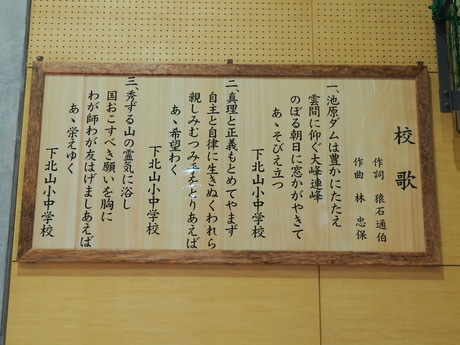 校歌
作詞 猿石通伯
作曲 林忠保
一、池原ダムは豊かにたたえ
雲間に仰ぐ大峰連峰
のぼる朝日に窓かがやきて
あゝそびえ立つ
下北山小中学校
二、真理と正義もとめてやまず
自主と自律に生きぬくわれら
親しみむつみ手をとりあえば
あゝ希望わく
下北山小中学校
三、秀ずる山の霊気に浴し
国おこすべき願いを胸に
わが師わが友はげましあえば
あゝ栄えゆく
下北山小中学校